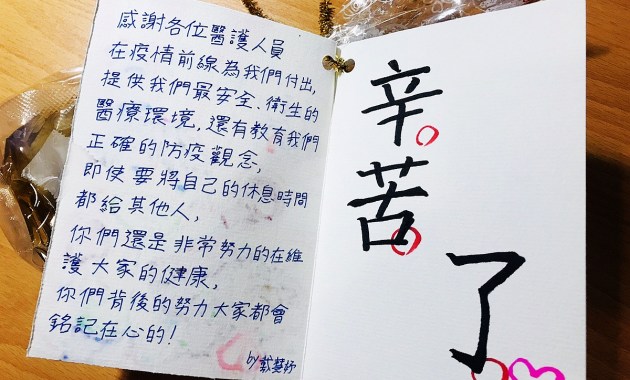 感謝各位醫護人員
在疫情前線為我們付出,
提供我們最安全、衛生的
醫療環境,還有教育我們
正確的防疫觀念,
即使要將自己的休息時間
都給其他人,
你們還是非常努力的在維
護大家的健康,
你們背後的努力大家都會
銘記在心的!
by戴
辛
苦
了